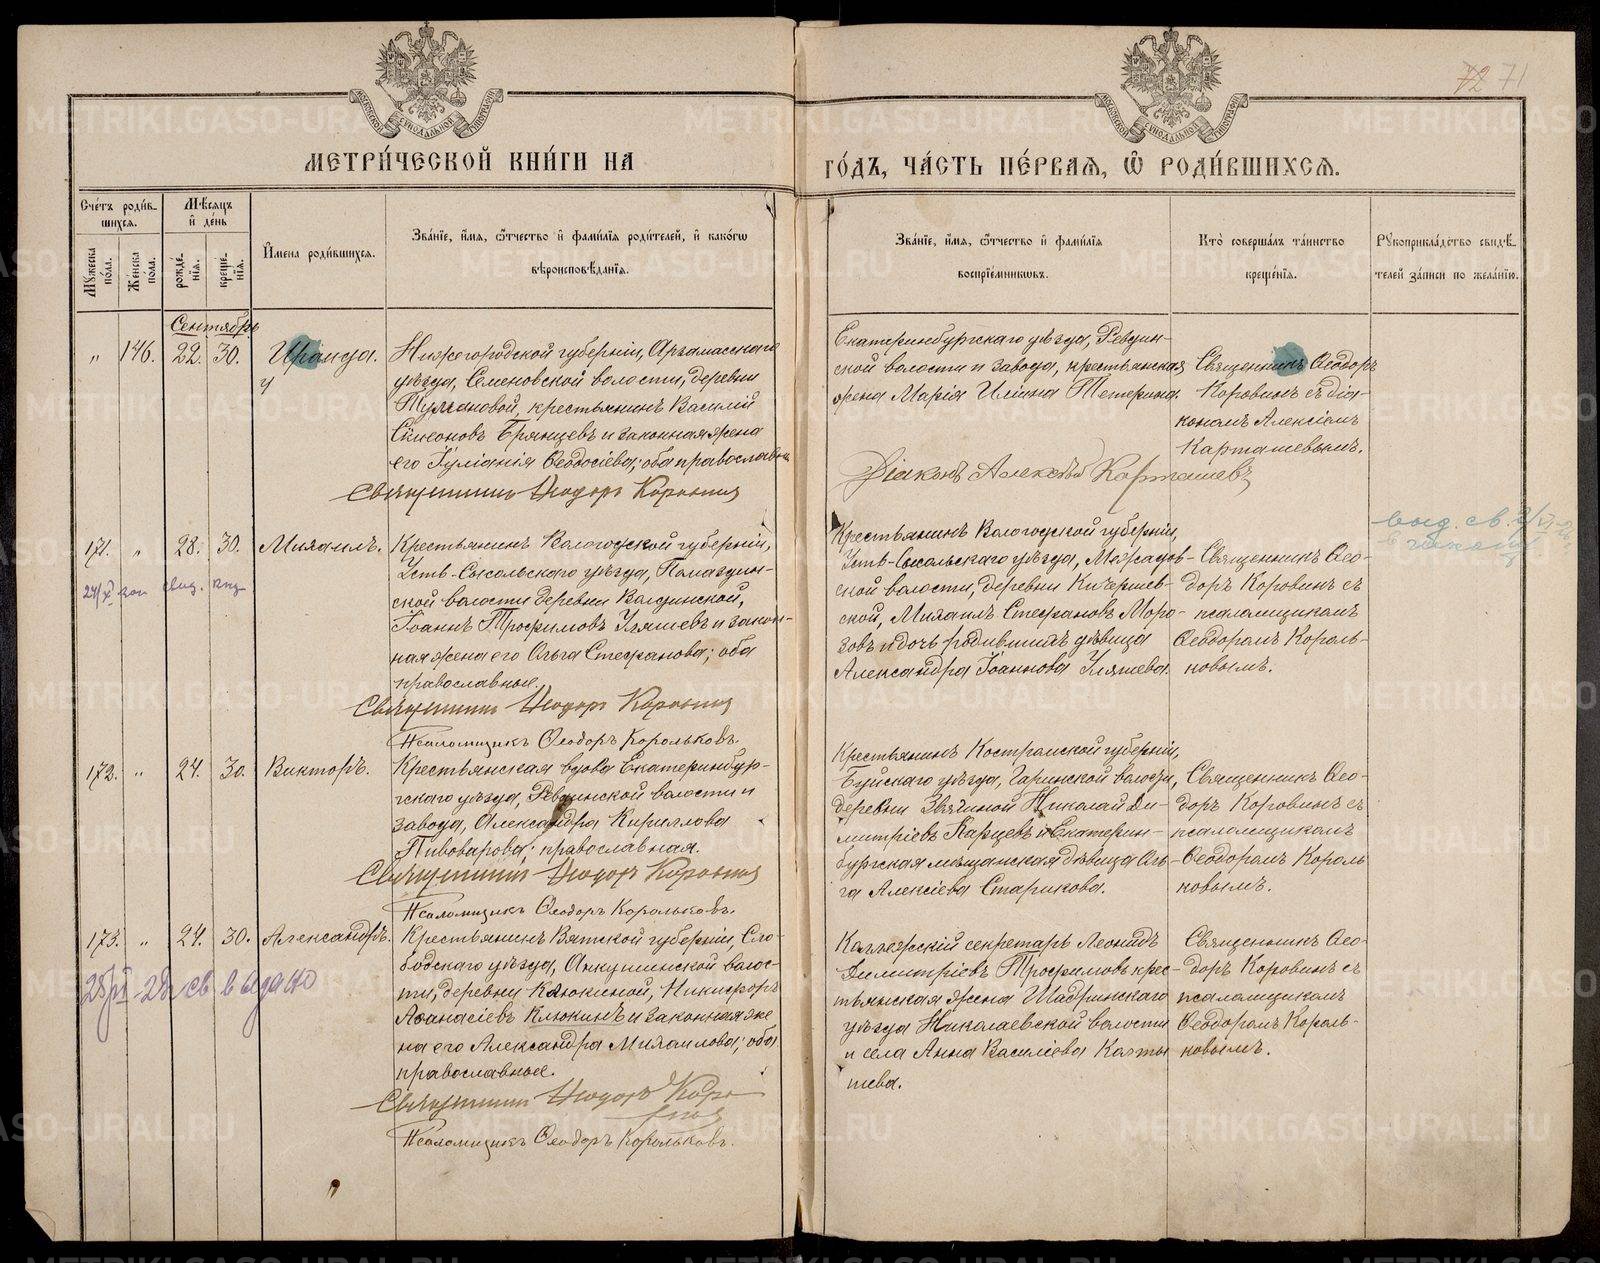 72 71
МОСКОВСКОЙ СѴНОДАЛЬНОЙ ТИПОГРАФІИ
МОСКОВСКОЙ СѴНОДАЛЬНОЙ ТИПОГРАФІИ
МЕТРИ́ЧЕСКОЙ КНИ́ГИ НА
ГО́ДЪ, ЧА́СТЬ ПЕ́РВАЯ, Ѡ҆ РОДИ́ВШИХСЯ.
Сче́тъ роди́в-
шихся.
Мѣ́сяцъ
и҆ де́нь
Мꙋжеска
пола.
Же́нска
пола.
рожде́-
нїя.
креще́-
нїя.
И҆мена роди́вшихся.
Зва́нїе, и҆́мя, ѻ҆́тчество и҆ фами́лїя роди́телей, и҆ како́гѡ
вѣроисповѣ́данїя.
Зва́нїе, и҆́мя, ѻ҆́тчество и҆ фами́лїя
воспрїе́мникѡвъ.
Кто̀ соверша́лъ та́инство
креще́нїя.
Рꙋкоприкла́дство свидѣ́-
телей за́писи по жела́нїю.
Сентябрь
„ 146. 22. 30. Ираида.
Нижегородской губерніи, Арзамасскаго
уѣзда, Семеновской волости, деревни
Тумановой, крестьянинъ Василій
Симеоновъ Брянцевъ и законная жена
его Іуліанія Ѳеодосіева; оба православны
Священникъ Ѳеодоръ Коровинъ
Екатеринбургскаго уѣзда, Ревдин-
ской волости и завода, крестьянская
жена Марія Ильина Тетерина.
Священникъ Ѳеодоръ
Коровинъ съ діа-
кономъ Алексіемъ
Карташевымъ.
Діаконъ Алексѣй Карташевъ
171. „ 28. 30. Михаилъ.
Крестьянинъ Вологодской губерніи,
Усть-Сысольскаго уѣзда, Помоздин-
ской волости деревни Волдинской,
Іоаннъ Трофимовъ Уляшевъ и закон-
ная жена его Ольга Стефанова; оба
православные.
Священникъ Ѳеодоръ Коровинъ
Псаломщикъ Ѳеодоръ Корольковъ.
Крестьянинъ Вологодской губерніи,
Усть-Сысольскаго уѣзда, Межадов-
ской волости, деревни
ской, Михаилъ Стефановъ Моро-
зовъ и дочь родившихъ дѣвица
Александра Іоаннова Уляшева.
Священникъ Ѳео-
доръ Коровинъ съ
псаломщикомъ
Ѳеодоромъ Король-
ковымъ.
выд. св.
172. „ 24. 30. Викторъ.
Крестьянская вдова Екатеринбур-
гскаго уѣзда, Ревдинской волости и
завода, Александра Кириллова
Пивоварова; православная.
Священникъ Ѳеодоръ Коровинъ
Псаломщикъ Ѳеодоръ Корольковъ.
Крестьянинъ Костромской губерніи,
Буйскаго уѣзда, Гаринской волости,
деревни Звягиной Николай Ди-
митріевъ Карцевъ и Екатерин-
бургская мѣщанская дѣвица Оль-
га Алексіева Старикова.
Священникъ Ѳео-
доръ Коровинъ съ
псаломщикомъ
Ѳеодоромъ Король
ковымъ.
173. „ 24. 30. Александръ.
св выдано
Крестьянинъ Вятской губерніи, Сло-
бодскаго уѣзда, Анкушинской волос-
ти, деревни Клюкиной, Никифоръ
Аѳанасіевъ Клюкинъ и законная же
на его Александра Михаилова; оба
православные.
Священникъ Ѳеодоръ Коро
винъ
Псаломщикъ Ѳеодоръ Корольковъ.
Коллежскій секретарь Леонидъ
Димитріевъ Трофимовъ крес-
тьянская жена Шадринскаго
уѣзда Николаевской волости
и села Анна Василіева Колты
шева.
Священникъ Ѳео-
доръ Коровинъ съ
псаломщикомъ
Ѳеодоромъ Король-
ковымъ.
METRIKI.GASO-URAL.RU